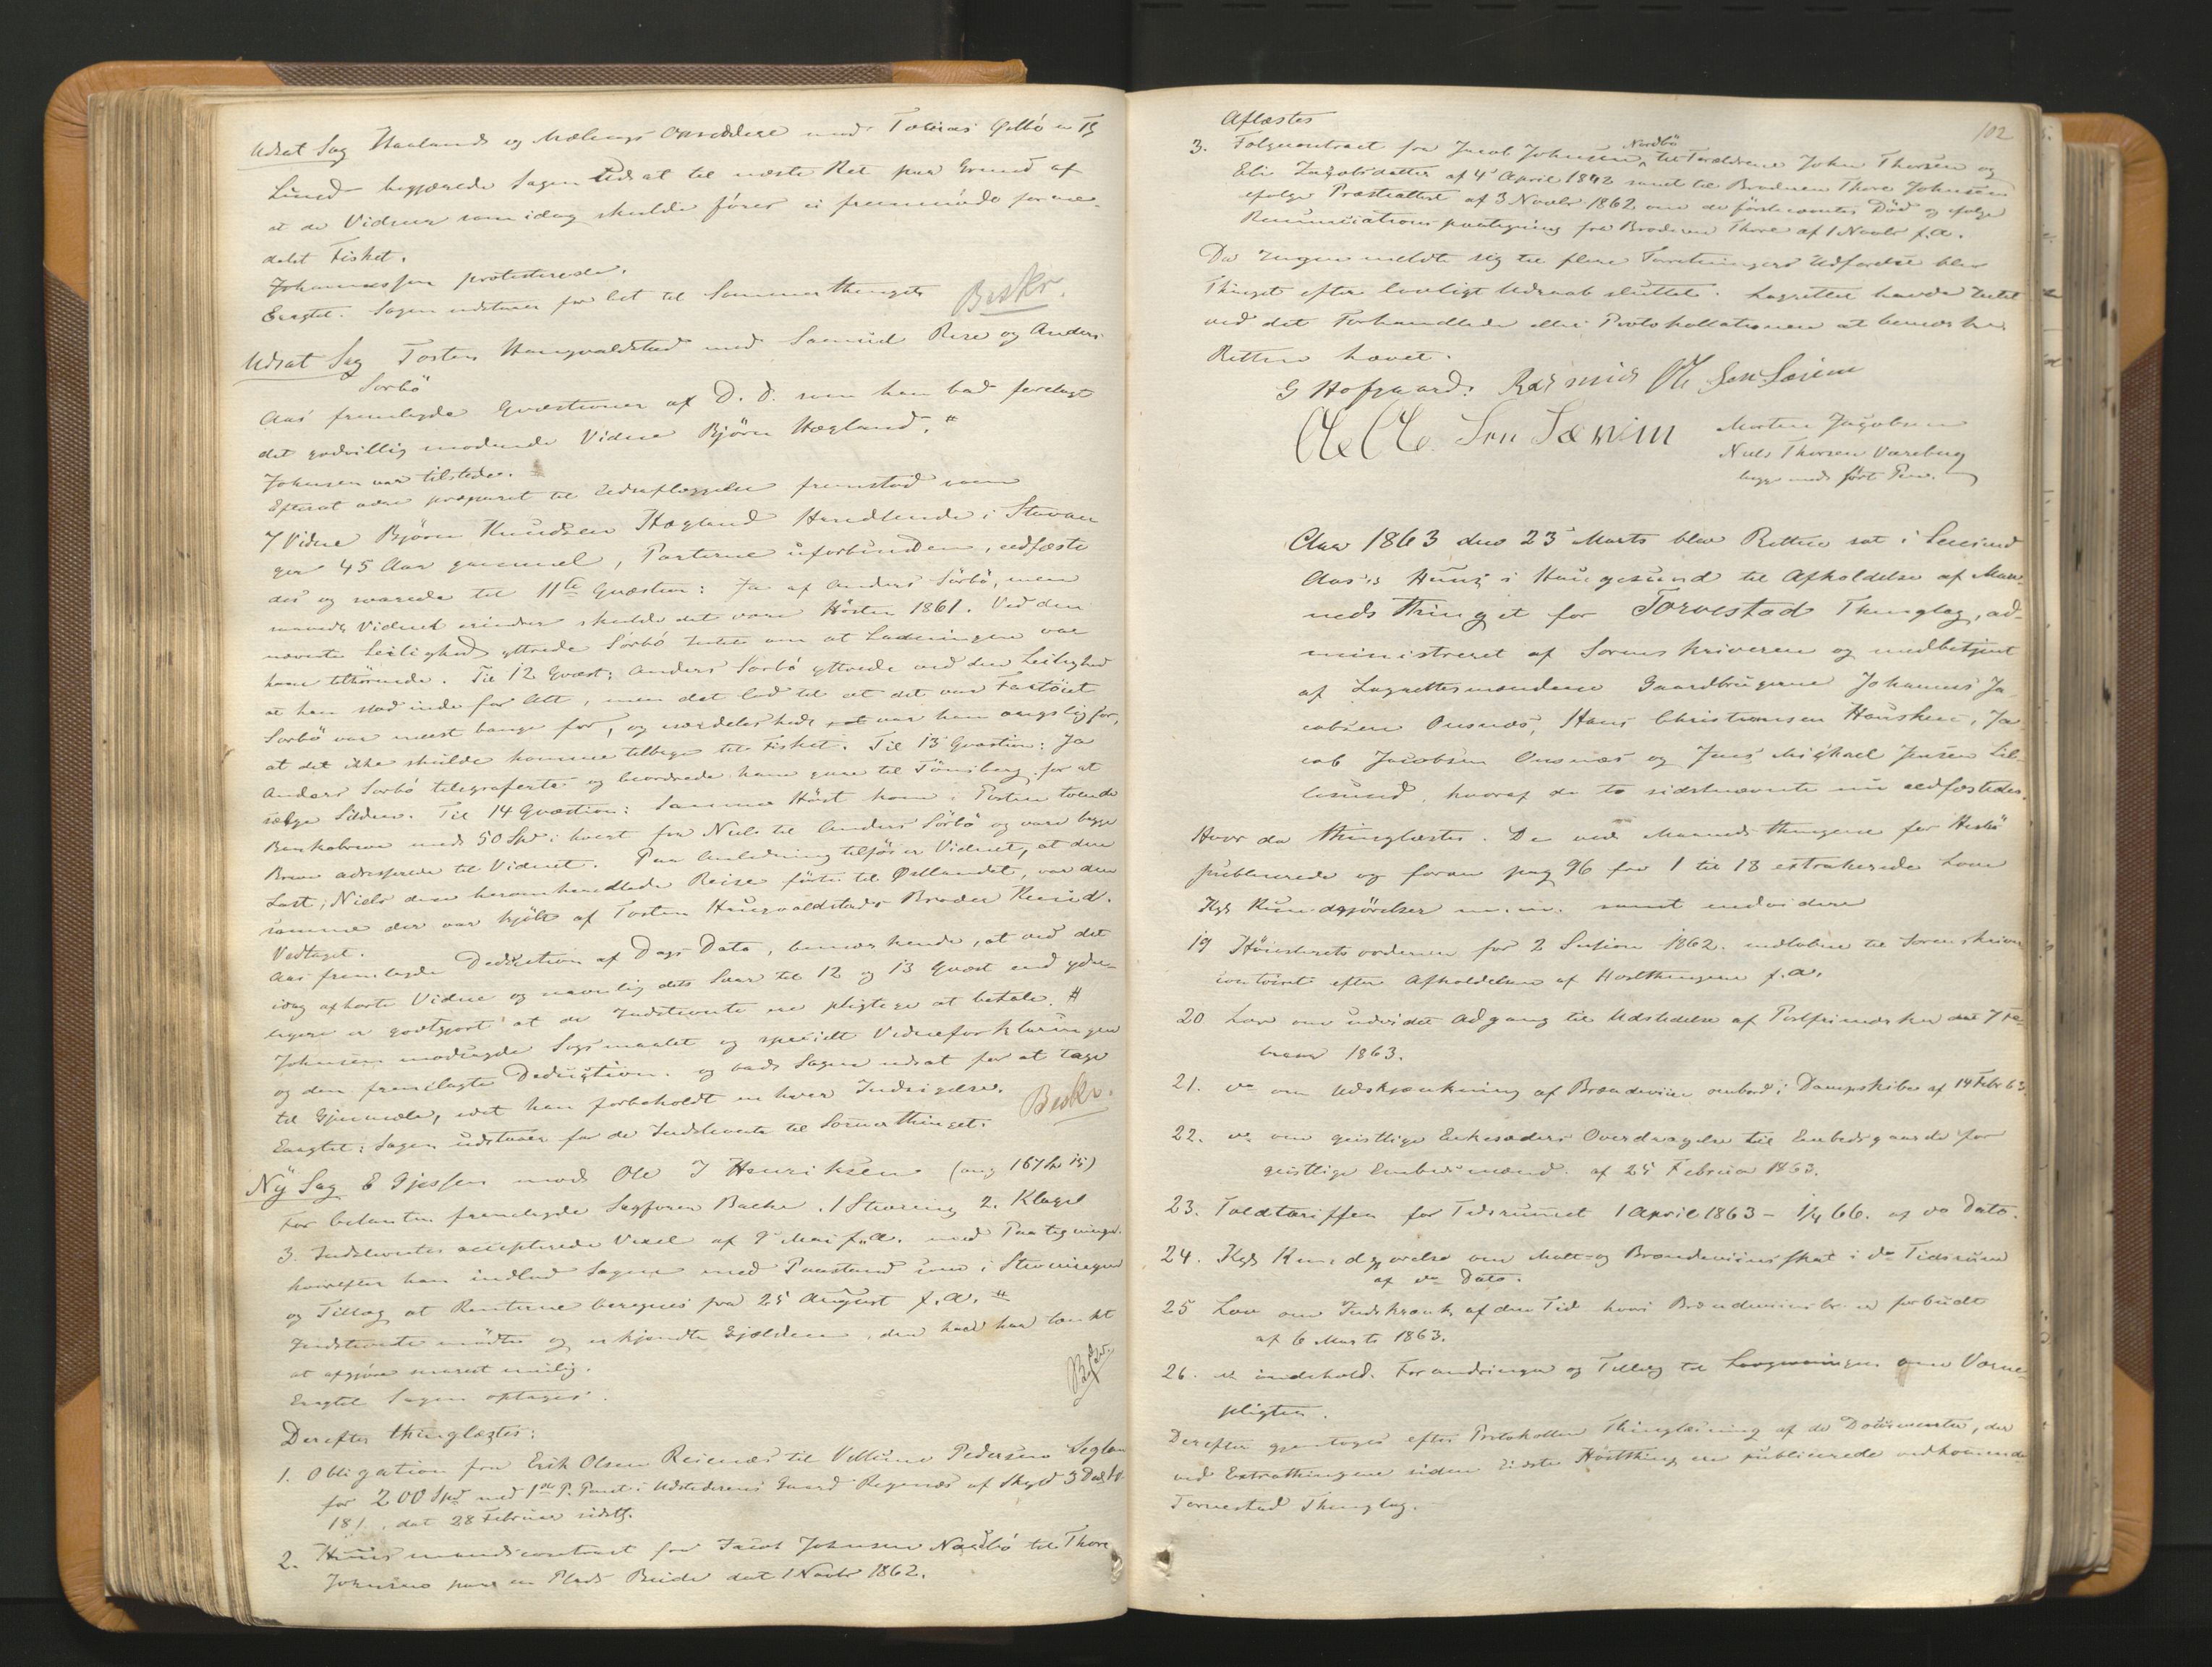 Udsat Sag Haalands og Mælings Opsiddere mod Tobias Gettö
Lund begjærede Sagen Udsat til næste Ret paa Grund af
at de Vidner som idag skulde föres ei fremmödte formedelst
delst Fisket.
Johannessen protesterede.
Eragtet: Sagen udstaaer for let til Sommerthinget Beskr.
Udsat Sag Tosten Haugvaldstad mod Samuel Rere og Anders
Sorbö
Aas fremlagde Qvæstioner af D. D. som han bad forelagt
det godvillig mödende Vidne Björn Hægland. #
Johnsen var tilstede.
Efterat være præpareret til Edsaflæggelse fremstod som
7 Vidne Björn Knudsen Hægland Handlende i Stavan
ger 45 Aar gammel, Parterne uforbunden, edfæste
des og svarede til 11te Qvæstion: Ja af Anders Sörbö, men
saavidt Vidnet erindrer skulde det være Hösten 1861. Ved den
nævnte Leilighed yttrede Sörbö Intet om at Ladningen var
ham tilhörende. Til 12 Qvæst: Anders Sorbö yttrede ved den Leilighed
at han stod inde for Alt, men det lod til at det var Fartöiet
Sorbö var meest bange for, og særdeleshed var han ængstlig for,
at det ikke skulde komme tilbage til Fisket. Til 13 Qvæstion: Ja
Anders Sorbö telegraferte og beordrede ham gaae til Tönsberg for at
sælge Silden. Til 14 Qvæstion: Samme Höst kom i Posten tvende
Bankobreve med 50 Spd i hvert fra Niels til Anders Sörbö og vare begge
Breve adresserede til Vidnet. Paa Anledning tilföier Vidnet, at den
Last, Niels den heromhandlede Reise förte til Østlandet, var den
samme der var kjöbt af Tosten Haugvaldstads Broder Knud.
Vedtaget.
Aas fremlagde Deduction af Dags Dato, bemærkende, at ved det
idag afhörte Vidne og navnlig dets Svar til 12 og 13 Qvæst end yder-
ligere er godtgjort at de Indstevnte ere pligtige at betale. #
Johnsen modsagde Sögsmaalet og specielt Vidneforklaringen
og den fremlagte Deduction. og bad Sagen udsat for at tage
til Gjenmæle, idet han forbeholdt en hver Indsigelse.
Eragtet: Sagen udstaaer for de Indstevnte til Somerthinget. Beskr.
Ny Sag E Gjessen mod Ole T Henriksen (ang 167
For Citanten fremlagde Sagförer Backe. 1 Stevning 2. Klagel
3. Indstevntes accepterede Vexel af 9 Mai f.A. med Paategninger.
hvorefter han indlod Sagen med Paastand som i Stevningen
og Tillæg at Renterne beregnes fra 25 August f.A. #
Indstevnte mödte og erkjendte Gjælden, den han har tænkt
at afgjöre snarest mulig.
Eragtet Sagen optages.
Derefter thinglæstes:
1. Obligation fra Erik Olsen Reienæs til Villum Pedersen
for 200 Spd med 1ste P. Pant i Udstederens Gaard Regenæs af Skyld 3
18 /. dat 28 Februar sidstl.
2. Huusmandscontract fra Jacob Johnsen Nordbö til Thore
Johnsen paa en Plads dat 1 Novbr 1862.
102
Aflæstes
3. Folgecontract fra Jacob Johnsen Nordbö til Forældrene John Thorsen og
Eli Jacobsdatter af 4 April 1842 samt til Broderen Thore Johnsen
ifølge Præsteattest af 3 Novbr 1862 om de förstnævntes Död og ifølge
Renunciations paategning fra Broderen Thore af 1 Novbr f.A.
Da Ingen meldte sig til flere Forretningers Udförelse blev
Thinget efter lovligt Udraab sluttet. Lagrettet havde Intet
ved det Forhandlede eller Protokollationen at bemærke
Retten hævet.
G Hofgaard. Rasmus Ole Sen Særem
Ole Ole Sen Særeim Morten Jacobsen
Niels Thorsen Vareberg
begge med fört Pen.
Aar 1863 den 23 Marts blev Retten sat i
Aas's Huus i Haugesund til Afholdelse af Maa-
nedsthinget for Torvestad Thinglag, ad-
ministreret af Sorenskriveren og medbetjent
af Lagrettesmændene Gaardbrugerne Johannes Ja-
cobsen Ousnæs, Hans Christensen Hausken, Ja-
cob Jacobsen Ousnæs og Jens Michael Jensen Lil-
lesund, hvoraf de to sidstnævnte nu edfæstedes.
Hvor da thinglæstes. De ved Maanedsthingene for Hesbö
publicerede og foran pag 96 fra 1 til 18 extraherede Love
Kgl Kundgjörelser m.m. samt endvidere
19 Höiesteretsordenen for 2 Session 1862. indlobne til Sorenskriver
contoiret efter Afholdelsen af Hostthingene f.A.
20 Lov om udvidet Adgang til Udstedelse af Postfrimærker dat 7 Fe-
bruar 1863.
21. do om Udskjænkning af Brændeviin ombord i Dampskibe af 14 Febr 63.
22. do om geistlige Enkesæders Overdragelse til Embedsgaarde for
geistlige Embedsmænd. af 25 Februar 1863.
23. Toldtariffen for Tidsrummet 1 April 1863 - 1/4 66. af do Dato.
24. Kgl Kundgjörelse om Malt- og Brændeviinsskat i do Tidsrum
af do Dato.
25 Lov om Indskrænk af den Tid hvori Brændeviinsbr. er forbudt
af 6 Marts 1863.
26. do indehold. Forandringer og Tillæg til Lovgivningen om Værne-
pligten.
Derefter gjentoges efter Protokollen Thinglæsning af de Documenter, der
ved Extrathingene siden sidste Höstthing ere publicerede vedkommende
Torvestad Thinglag.